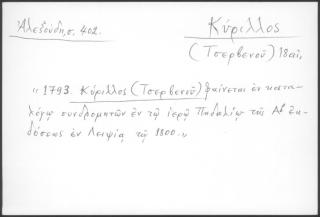 Ἀλεξούδη, σ. 402.
Κύριλλος
(Τσερβενοῦ) 18αἰ,
„ 1793. Κύριλλος (Τσερβενοῦ) φαίνεται ἐν κατα-
λόγῳ συνδρομητῶν ἐν τῷ ἱερῷ Πηδαλίῳ τῆς Αʹ ἐκ-
δόσεως ἐν Λειψίᾳ τῷ 1800.„